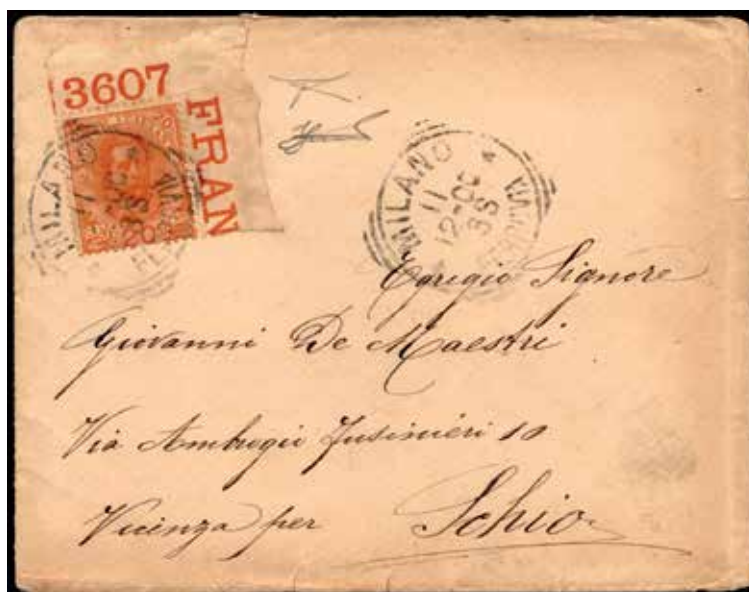 3607
FRAN
20
MILANO
11
12-OC
Egregio Signore
Giovanni De Maestri
Via Ambrogio Fusinieri 10
Vicenza per Schio